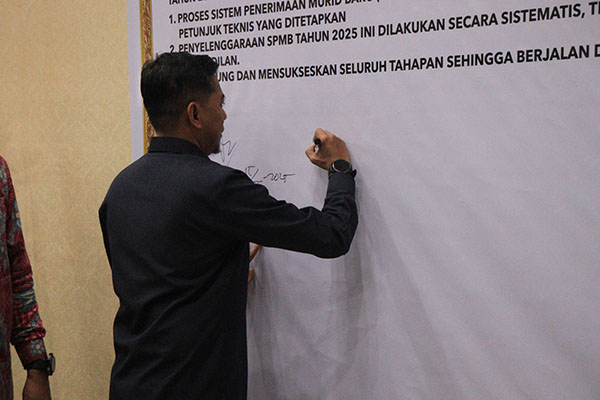 TAHUN
1. PROSES SISTEM PENERIMAAN MURID BARU
PETUNJUK TEKNIS YANG DITETAPKAN
2. PENYELENGGARAAN SPMB TAHUN 2025 INI DILAKUKAN SECARA SISTEMATIS, T
DILAN.
UNG DAN MENSUKSESKAN SELURUH TAHAPAN SEHINGGA BERJALAN D